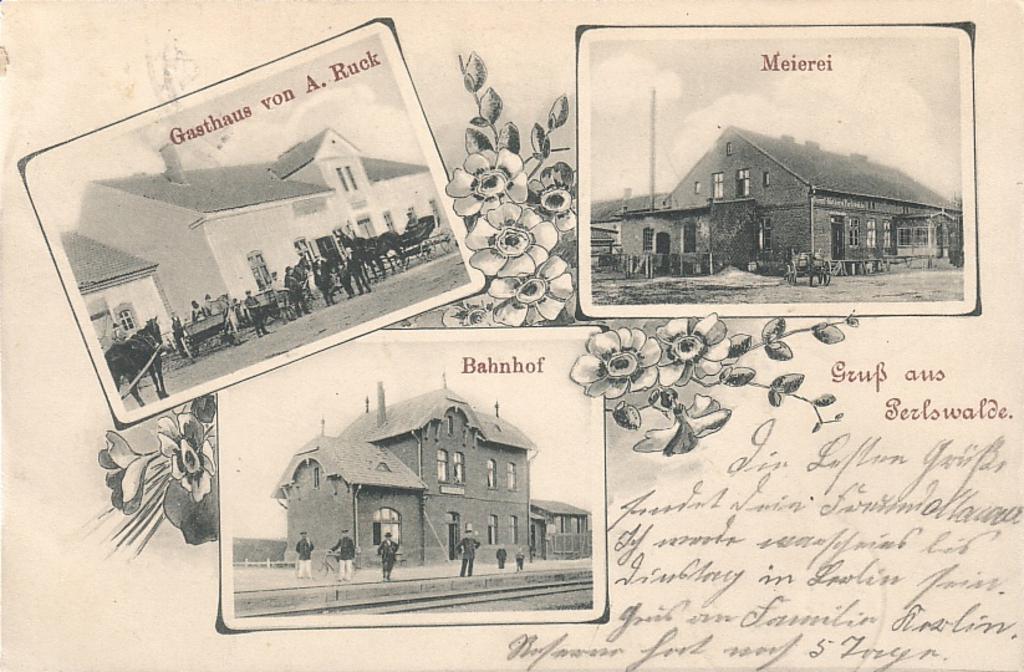 Gasthaus von A. Ruck
Meierei
Bahnhof
Gruß aus
Perlswalde.
Die besten Grüße
sendet dein Freund
Ich werde bis
Dinstag in Berlin sein.
Grus an Familie
hat noch 5 Tage.